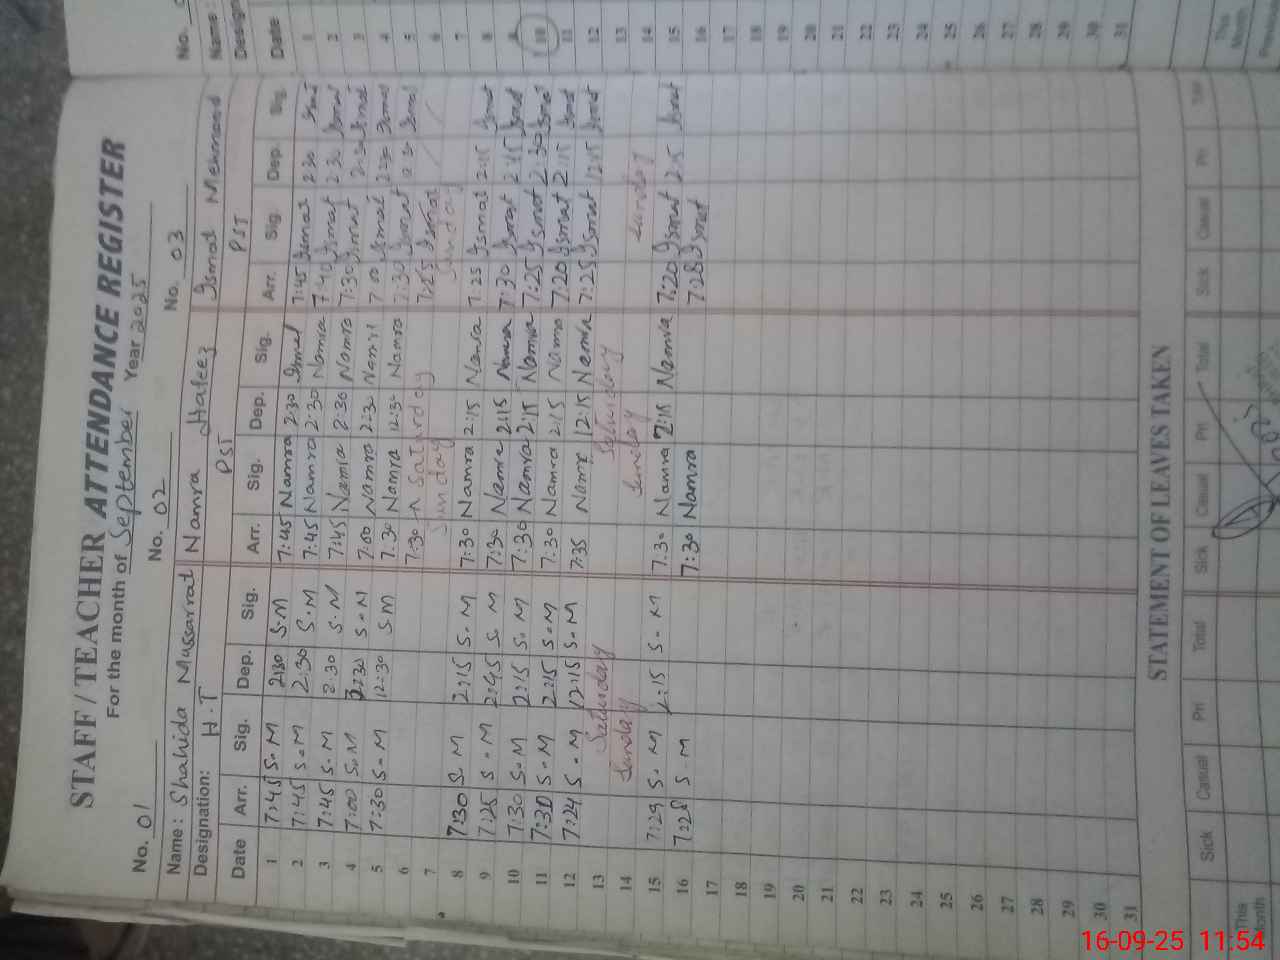 STAFF / TEACHER ATTENDANCE REGISTER
For the month of September Year 2025
No. 01 No. 02 No. 03
Name: Shahida Mussarrat Namra Hafeez Ismat Mehmood
Designation: H.T PST PST
Date Arr. Sig. Dep. Sig. Arr. Sig. Dep. Sig. Arr. Sig. Dep. Sig.
1 7:45 S.M 2:30 S.M 7:45 Namra 2:30 7:45 Ismat 2:30 Ismat
2 7:45 S.M 2:30 S.M 7:45 Namra 2:30 Namra 7:40 Ismat 2:30 Ismat
3 7:45 S.M 2:30 S.M 7:45 Namra 2:30 Namra 7:30 Ismat 2:30 Ismat
4 7:00 S.M 2:30 S.M 7:00 Namra 2:30 Namra 7:00 Ismat 2:30 Ismat
5 7:30 S.M 12:30 S.M 7:30 Namra 12:30 Namra 7:30 Ismat Ismat
6 7:30 Saturday Ismat
7 Sunday Sunday
8 7:30 S.M 2:15 S.M 7:30 Namra 2:15 Namra 7:25 Ismat 2:15 Ismat
9 7:25 S.M 2:45 S.M 7:30 Namra 2:15 Namra 7:30 Ismat 2:15 Ismat
10 7:30 S.M 2:15 S.M 7:30 Namra 2:15 Namra 7:25 Ismat 2:30 Ismat
11 7:30 S.M 2:15 S.M 7:30 Namra 2:15 Namra 7:20 Ismat 2:15 Ismat
12 7:24 S.M 12:15 S.M 7:35 Namra 12:15 Namra 7:25 Ismat 12:15 Ismat
13 Saturday Saturday
14 Sunday Sunday Sunday
15 7:29 S.M 2:15 S.M 7:30 Namra 2:15 Namra 7:20 Ismat 2:15 Ismat
16 7:28 S.M 7:30 Namra 7:28 Ismat
17
18
19
20
21
22
23
24
25
26
27
28
29
30
31
STATEMENT OF LEAVES TAKEN
Sick Casual Pri Total Sick Casual Pri Total Sick Casual Pri Total
This Month
No.
Name:
Design
Date
1
2
3
4
5
6
7
8
9
10
11
12
13
14
15
16
17
18
19
20
21
22
23
24
25
26
27
28
29
30
31
This Month
Previous
16-09-25 11:54